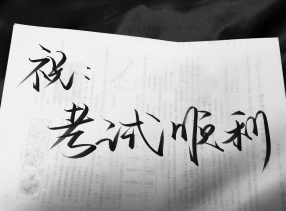 祝：
考试顺利